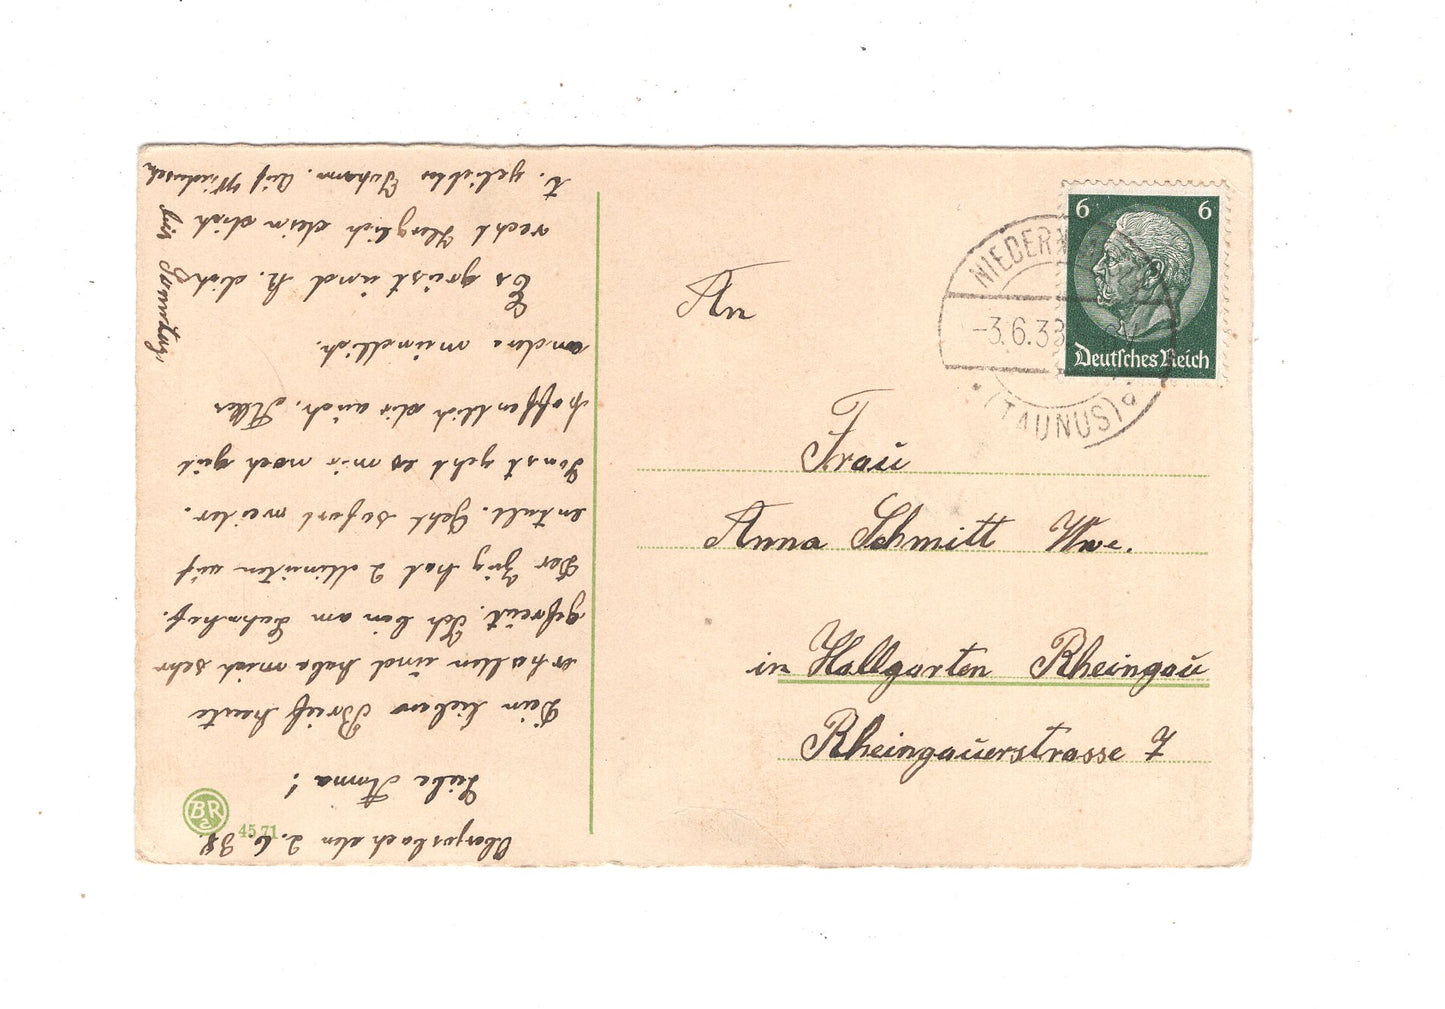 Oberjosbach den 2.6.38.
Liebe Anna!
Dein lieber Brief heute
erhalten und habe mich sehr
gefreut. Ich bin am Bahnhof.
Der Zug hat 2 Minuten auf
entalt. Geht sofort weiter.
Sonst geht es mir noch gut
hoffentlich dir auch. Alles
andere mündlich.
Es grüst und k. dich
recht Herzlich dein dich
t. gelibter Johann. Auf Wiedersch
bis Sonntag
An
Frau
Anna Schmitt Wwe.
in Hallgarten Rheingau
Rheingauerstrasse 7
6 6
Deutsches Reich
NIEDER
-3.6.38
(TAUNUS)
BR
4571